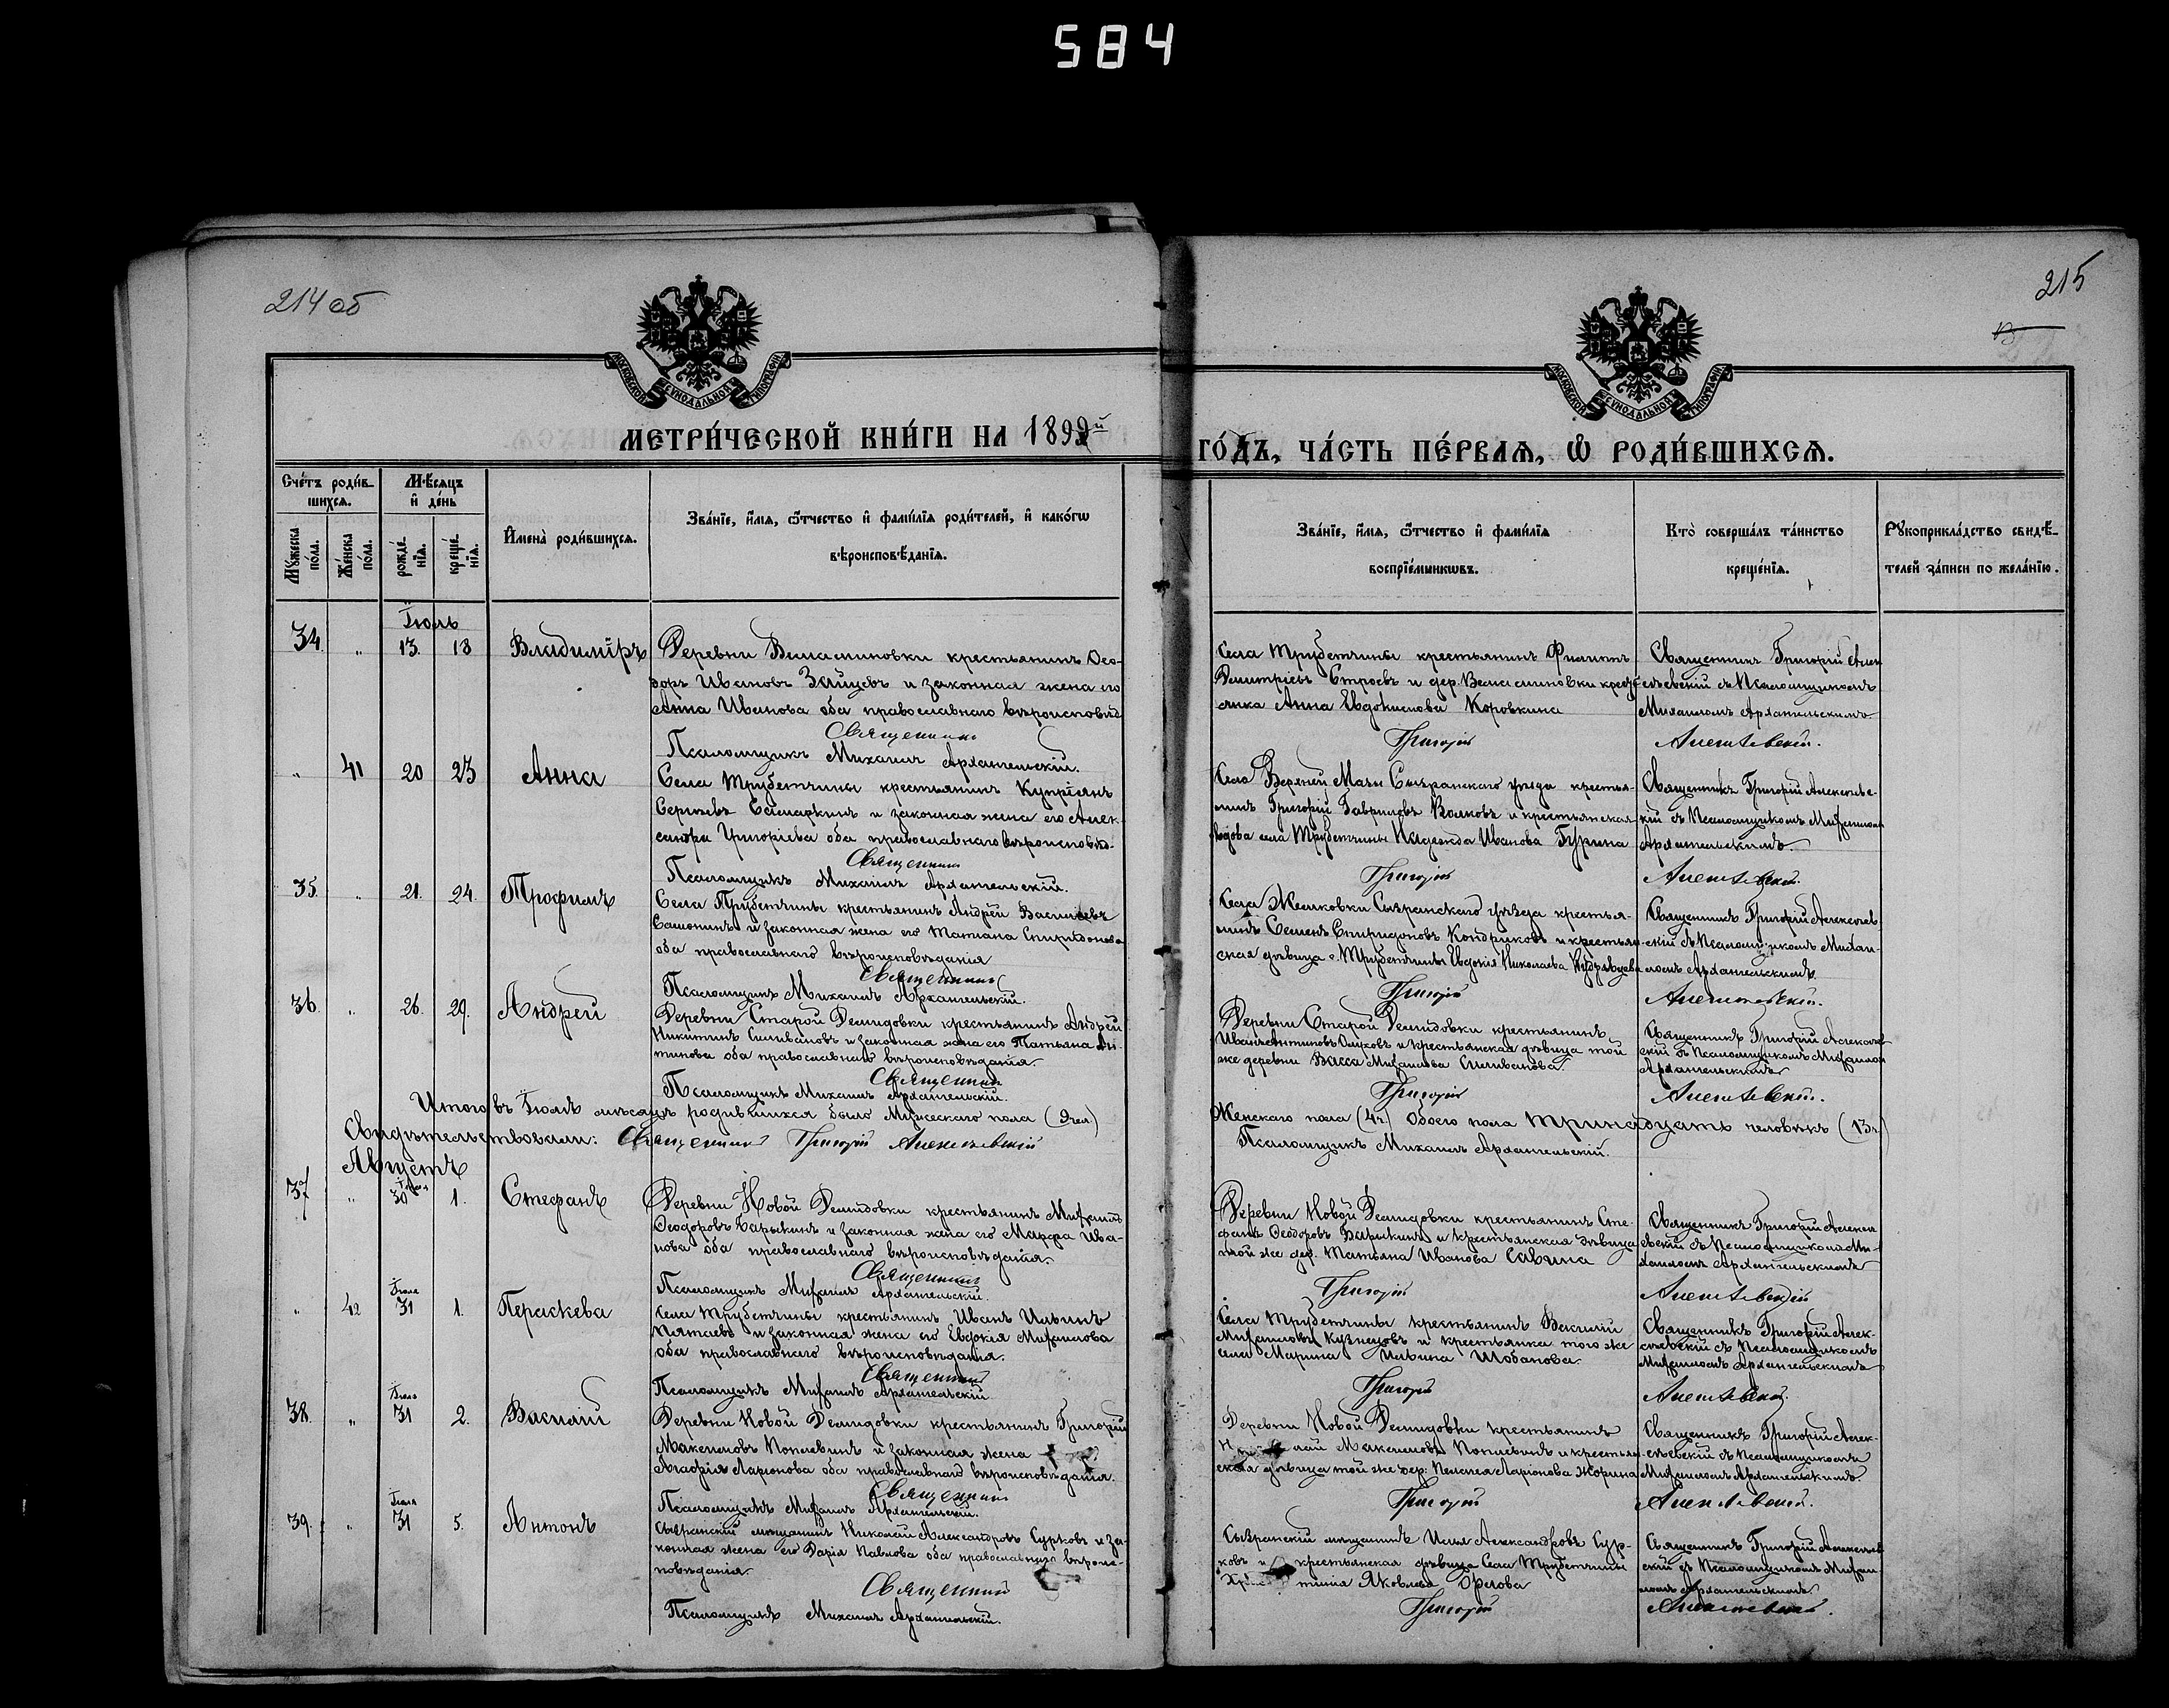 584
214 об
215
МОСКОВСКОЙ СУНОДАЛЬНОЙ ТИПОГРАФІИ
МОСКОВСКОЙ СУНОДАЛЬНОЙ ТИПОГРАФІИ
МЕТРИ́ЧЕСКОЙ КНИ́ГИ НА 1892й ГО́ДЪ, ЧА́СТЬ ПЕ́РВАѦ, Ѽ РОДИ́ВШИХСѦ.
Сче́тъ роди́в-
шихсѧ.
Мѣ́сяцъ
и҆ де́нь
Мꙋжеска по́ла.
Же́нска по́ла.
рожде́-
нїѧ.
креще́-
нїѧ.
И҆мена̀ роди́вшихсѧ.
Зва́нїе, и҆́мѧ, ѻ҆́тчество и҆ фами́лїѧ роди́телей, и҆ како́гѡ
вѣроисповѣ́данїѧ.
Зва́нїе, и҆́мѧ, ѻ҆́тчество и҆ фами́лїѧ
воспрїе́мникѡвъ.
Кто̀ соверша́лъ та́инство
креще́нїѧ.
Рꙋкоприкла́дство свидѣ́-
телей за́писи по жела́нїю.
Іюль
34. " 13. 18 Владиміръ
Деревни крестьянинъ Ѳео-
доръ Ивановъ Зайцевъ и законная жена его
Анна Иванова оба православнаго вѣроисповѣд
Священникъ
Псаломщикъ Михаилъ Архангельскій.
Села Трубетчины крестьянинъ Филиппъ
Димитріевъ Строевъ и дер. кресть
янка Анна Евдокимова Коровкина
Григорій
Священникъ Григорій Алек
сѣевскій съ Псаломщикомъ
Михаиломъ Архангельскимъ.
Алексѣевскій.
" 41 20 23 Анна
Села Трубетчины крестьянинъ Купріянъ
Сергѣевъ и законная жена его Алек-
сандра Григорьева оба православнаго вѣроисповѣд-
Священникъ
Псаломщикъ Михаилъ Архангельскій.
Села Верхней Мазы Сызранскаго уѣзда крестья-
нинъ Григорій Гавриловъ Волковъ и крестьянская
вдова села Трубетчины Надежда Иванова Бурина
Григорій
Священникъ Григорій Алексѣевс-
кій съ Псаломщикомъ Михаиломъ
Архангельскимъ.
Алексѣевскій.
35. " 21. 24. Трофимъ
Села Трубетчины крестьянинъ Андрей Васильевъ
и законная жена его Татіана Спиридонова
оба православнаго вѣроисповѣданія
Священникъ
Псаломщикъ Михаилъ Архангельскій.
Села Жемковки Сызранскаго уѣзда крестья-
нинъ Семенъ Спиридоновъ Кондриковъ и крестьян-
ская дѣвица с. Трубетчины Евдокія Николаева Кудрявцева
Григорій
Священникъ Григорій Алексѣев-
скій съ Псаломщикомъ Михаи-
ломъ Архангельскимъ.
Алексѣевскій.
36. " 26. 29. Андрей
Деревни Старой Демидовки крестьянинъ Андрей
Никитинъ Силивановъ и законная жена его Татьяна Ан-
типова оба православнаго вѣроисповѣданія.
Священникъ
Псаломщикъ Михаилъ Архангельскій.
Деревни Старой Демидовки крестьянинъ
Иванъ Антиповъ и крестьянская дѣвица той
же деревни Васса Михайлова Силиванова.
Григорій
Священникъ Григорій Алексѣев
скій съ Псаломщикомъ Михаиломъ
Архангельскимъ
Алексѣевскій.
Итого въ Іюлѣ мѣсяцѣ родившихся было Мужескаго пола (9 чел.) Женскаго пола (4 ч.) Обоего пола тринадцать человѣкъ (13 ч.)
Свидѣтельствовали: Священникъ Григорій Алексѣевскій
Псаломщикъ Михаилъ Архангельскій.
Августъ
37 " Іюля 30 1. Стефанъ
Деревни Новой Демидовки крестьянинъ Михаилъ
Ѳеодоровъ Барыкинъ и законная жена его Марфа Ива-
нова оба православнаго вѣроисповѣданія.
Священникъ
Псаломщикъ Михаилъ Архангельскій.
Деревни Новой Демидовки крестьянинъ Сте-
фанъ Ѳеодоровъ Барыкинъ и крестьянская дѣвица
той же дер. Татьяна Иванова Савина
Григорій
Священникъ Григорій Алексѣ
евскій съ Псаломщикомъ Ми-
хаиломъ Архангельскимъ
Алексѣевскій
" 42 Іюля 31 1. Пераскева
Села Трубетчины крестьянинъ Иванъ Ильинъ
Пятаевъ и законная жена его Евфкія Михайлова
оба православнаго вѣроисповѣданія.
Священникъ
Псаломщикъ Михаилъ Архангельскій
Села Трубетчины крестьянинъ Василій
Михайловъ Кузнецовъ и крестьянка того же
села Марина Ильина Шобанова.
Григорій
Священникъ Григорій Алек-
сѣевскій съ Псаломщикомъ
Михаиломъ Архангельскимъ
Алексѣевскій.
38. " Іюля 31 2. Василій
Деревни Новой Демидовки крестьянинъ Григорій
Максимовъ и законная жена
Агафія Ларіонова оба православнаго вѣроисповѣданія.
Священникъ
Псаломщикъ Михаилъ Архангельскій.
Деревни Новой Демидовки крестьянинъ
Максимовъ и крестьян-
ская дѣвица той же дер. Пелагея Ларіонова Жорина
Григорій
Священникъ Григорій Алек-
сѣевскій съ Псаломщикомъ
Михаиломъ Архангельскимъ.
Алексѣевскій.
39. " Іюля 31 5. Антонъ
Сызранскій мѣщанинъ Николай Александровъ Сурковъ и за-
конная жена его Дарія Павлова оба православнаго вѣроис-
повѣданія
Священникъ
Псаломщикъ Михаилъ Архангельскій.
Сызранскій мѣщанинъ Илья Александровъ Сур-
ковъ и крестьянская дѣвица Села Трубетчины
Яковлева Орлова
Григорій
Священникъ Григорій Алексѣев
скій съ Псаломщикомъ Михаи
ломъ Архангельскимъ
Алексѣевскій.